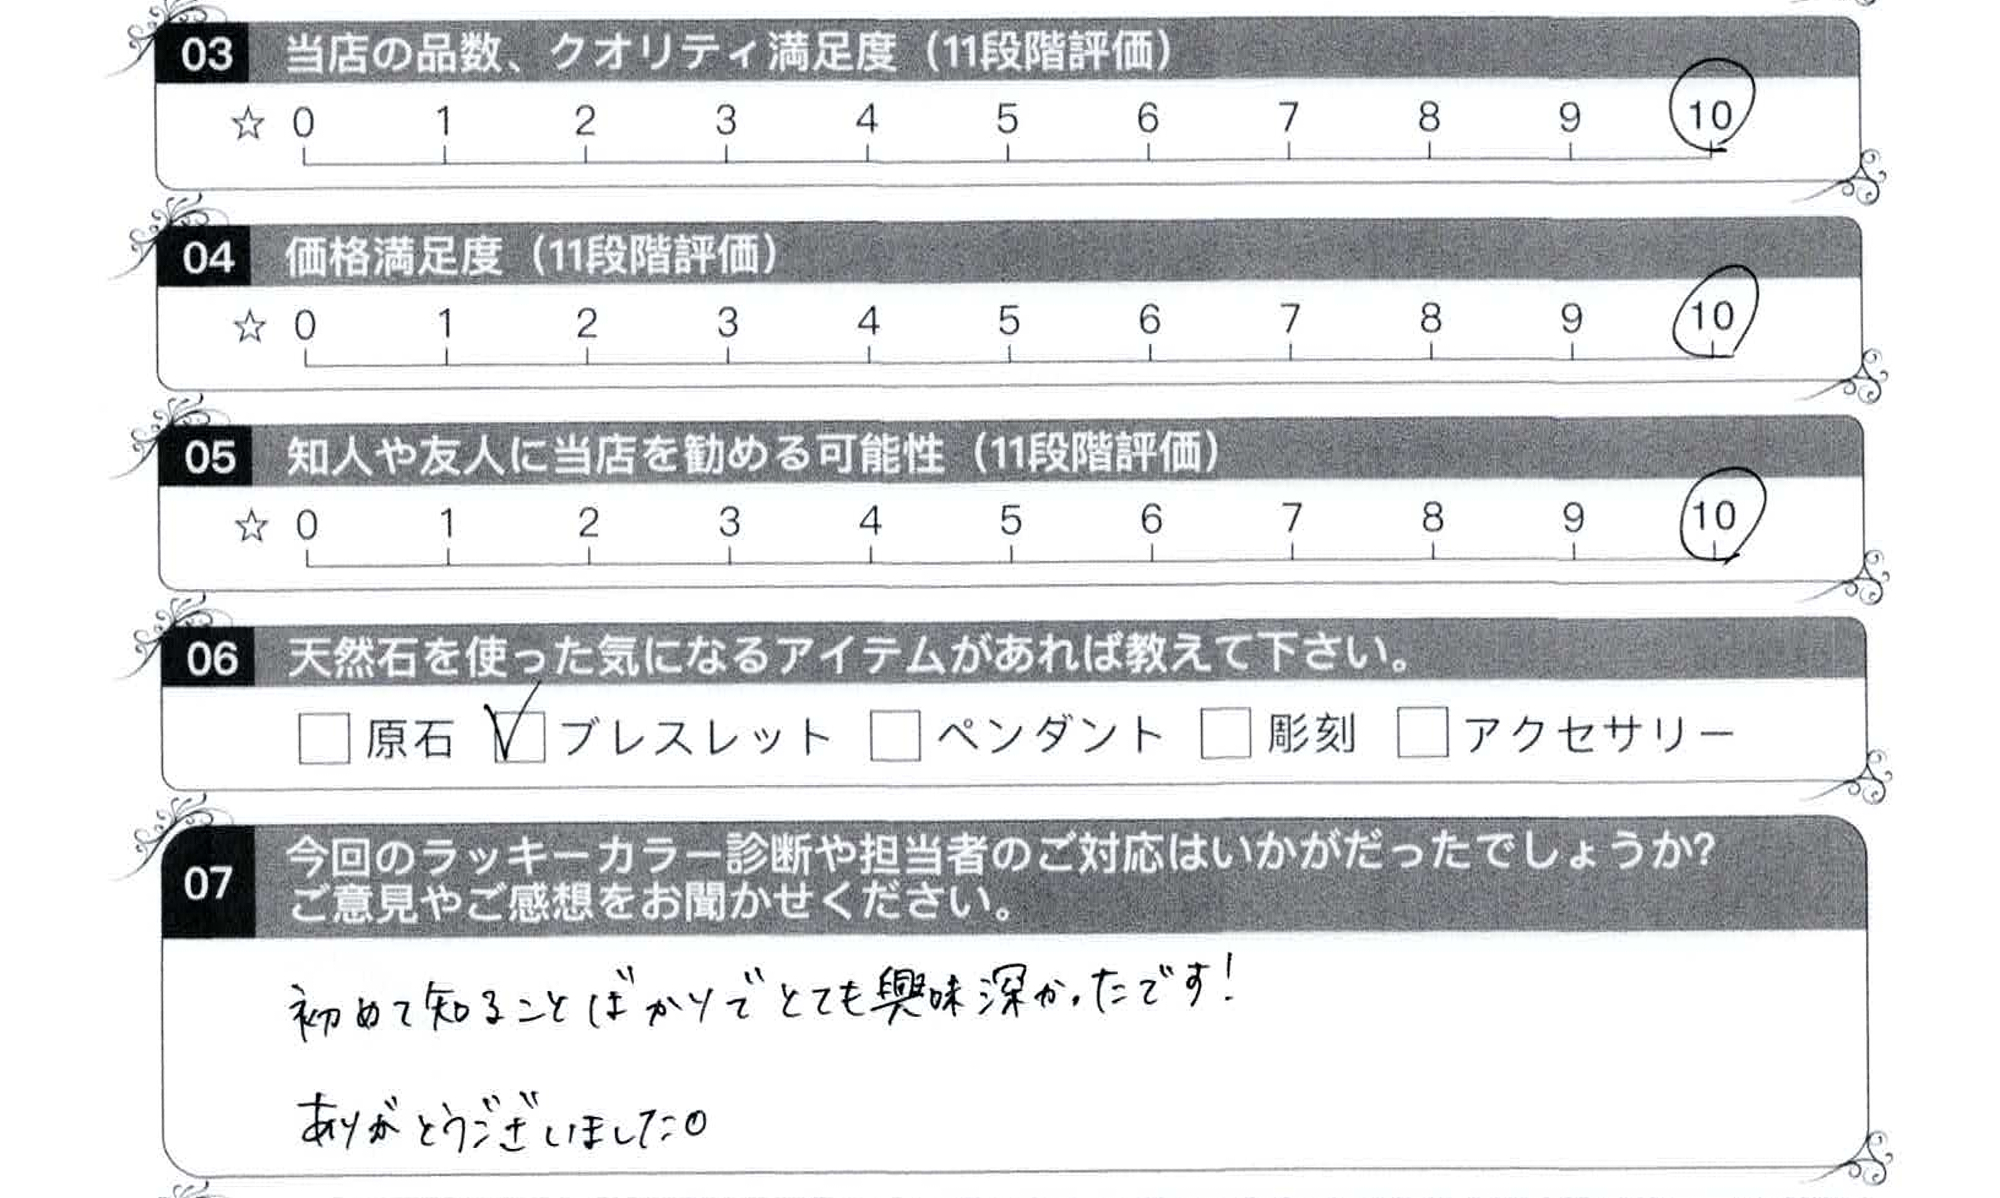 03 当店の品数、クオリティ満足度（11段階評価）
☆ 0 1 2 3 4 5 6 7 8 9 10
04 価格満足度（11段階評価）
☆ 0 1 2 3 4 5 6 7 8 9 10
05 知人や友人に当店を勧める可能性（11段階評価）
☆ 0 1 2 3 4 5 6 7 8 9 10
06 天然石を使った気になるアイテムがあれば教えて下さい。
原石 ブレスレット ペンダント 彫刻 アクセサリー
07 今回のラッキーカラー診断や担当者のご対応はいかがだったでしょうか?
ご意見やご感想をお聞かせください。
初めて知ることばかりでとても興味深かったです!
ありがとうございました。